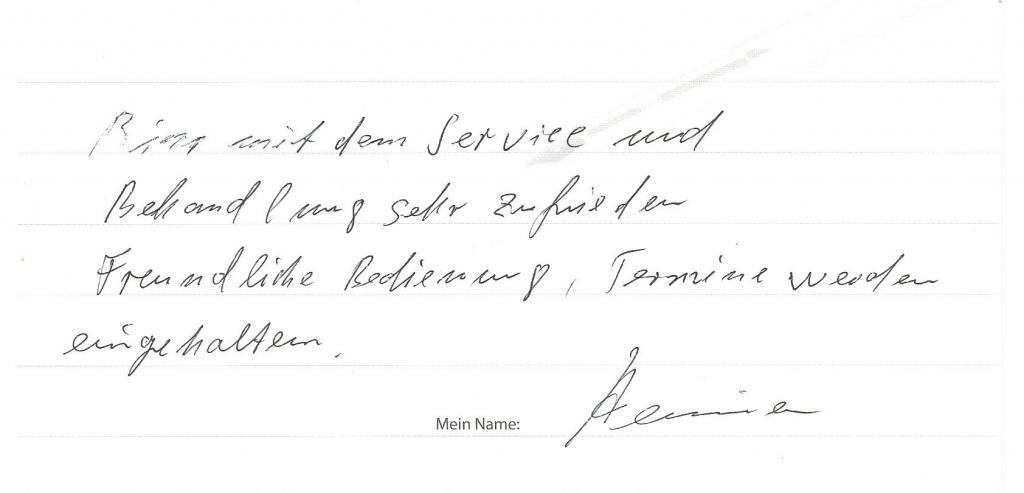 Bin mit dem Service und
Behandlung sehr zufrieden
Freundliche Bedienung, Termine werden
eingehalten.
Mein Name: